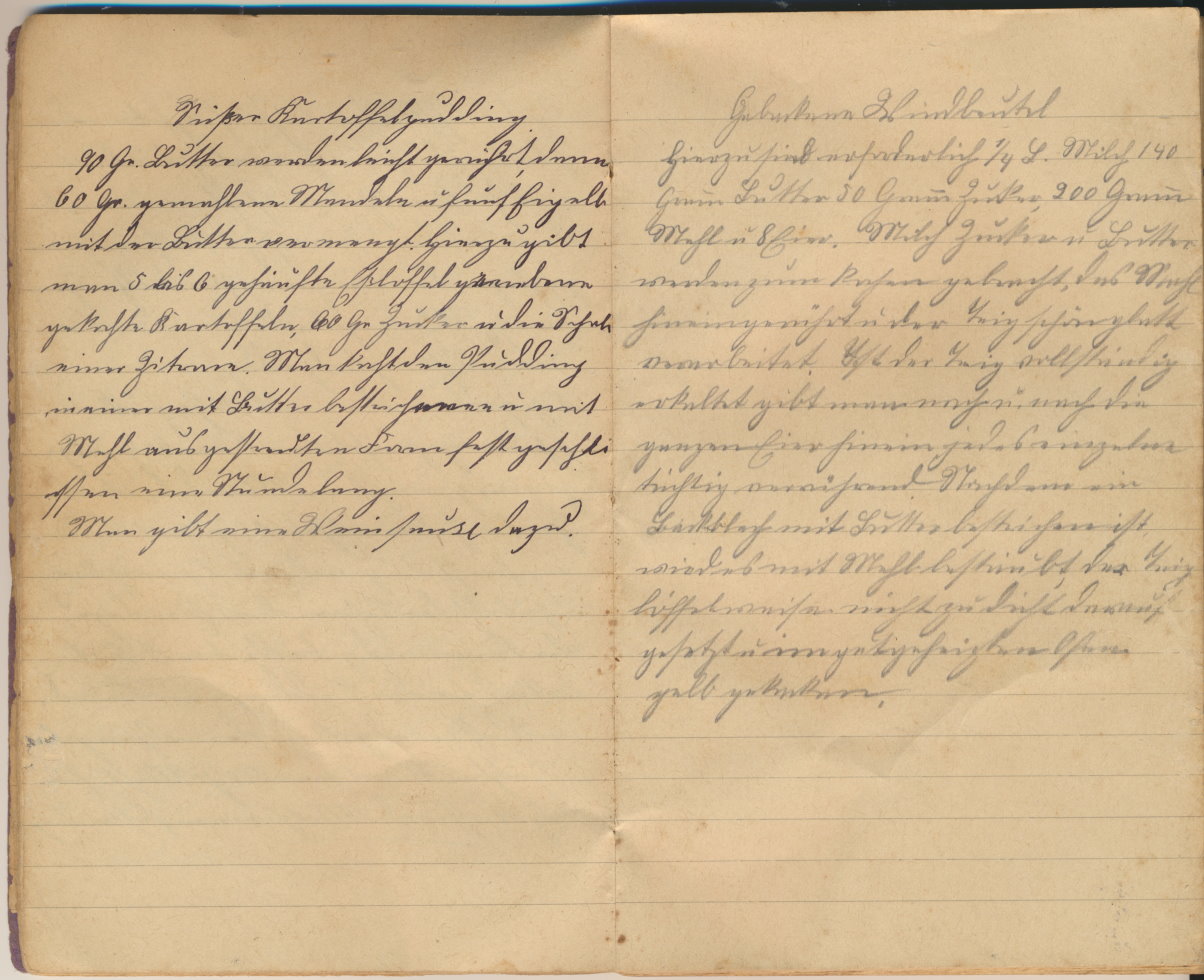 Süßer Kartoffelpudding
90 Gr. Butter werden leicht gerührt, dann
60 Gr. gemahlene Mandeln u fünf Eigelb
mit der Butter vermengt. Hierzu gibt
man 5 bis 6 gehäufte Eßlöffel geriebene
gekochte Kartoffeln, 60 Gr Zucker u die Schale
einer Zitrone. Man kocht den Pudding
in einer mit Butter bestrichenen u mit
Mehl ausgestreuten Form fest geschlo
ssen eine Stunde lang.
Man gibt eine Weinsauce dazu.
Gebackene Windbeutel
Hierzu sind erforderlich 1/4 L. Milch 140
Gram̅ Butter 50 Gram̅ Zucker, 200 Gram̅
Mehl u 8 Eier. Milch Zucker u Butter
werden zum kochen gebracht, das Mehl
hineingerührt u der Teig schön glatt
verarbeitet. Ist der Teig vollständig
erkaltet gibt man nach u. nach die
ganzen Eier hinein jedes einzelne
tüchtig verrührend. Nachdem ein
Backblech mit Butter bestrichen ist,
wird es mit Mehl bestäubt, der Teig
löffelweise nicht zu dicht darauf
gesetzt u im gutgeheizten Ofen
gelb gebacken.